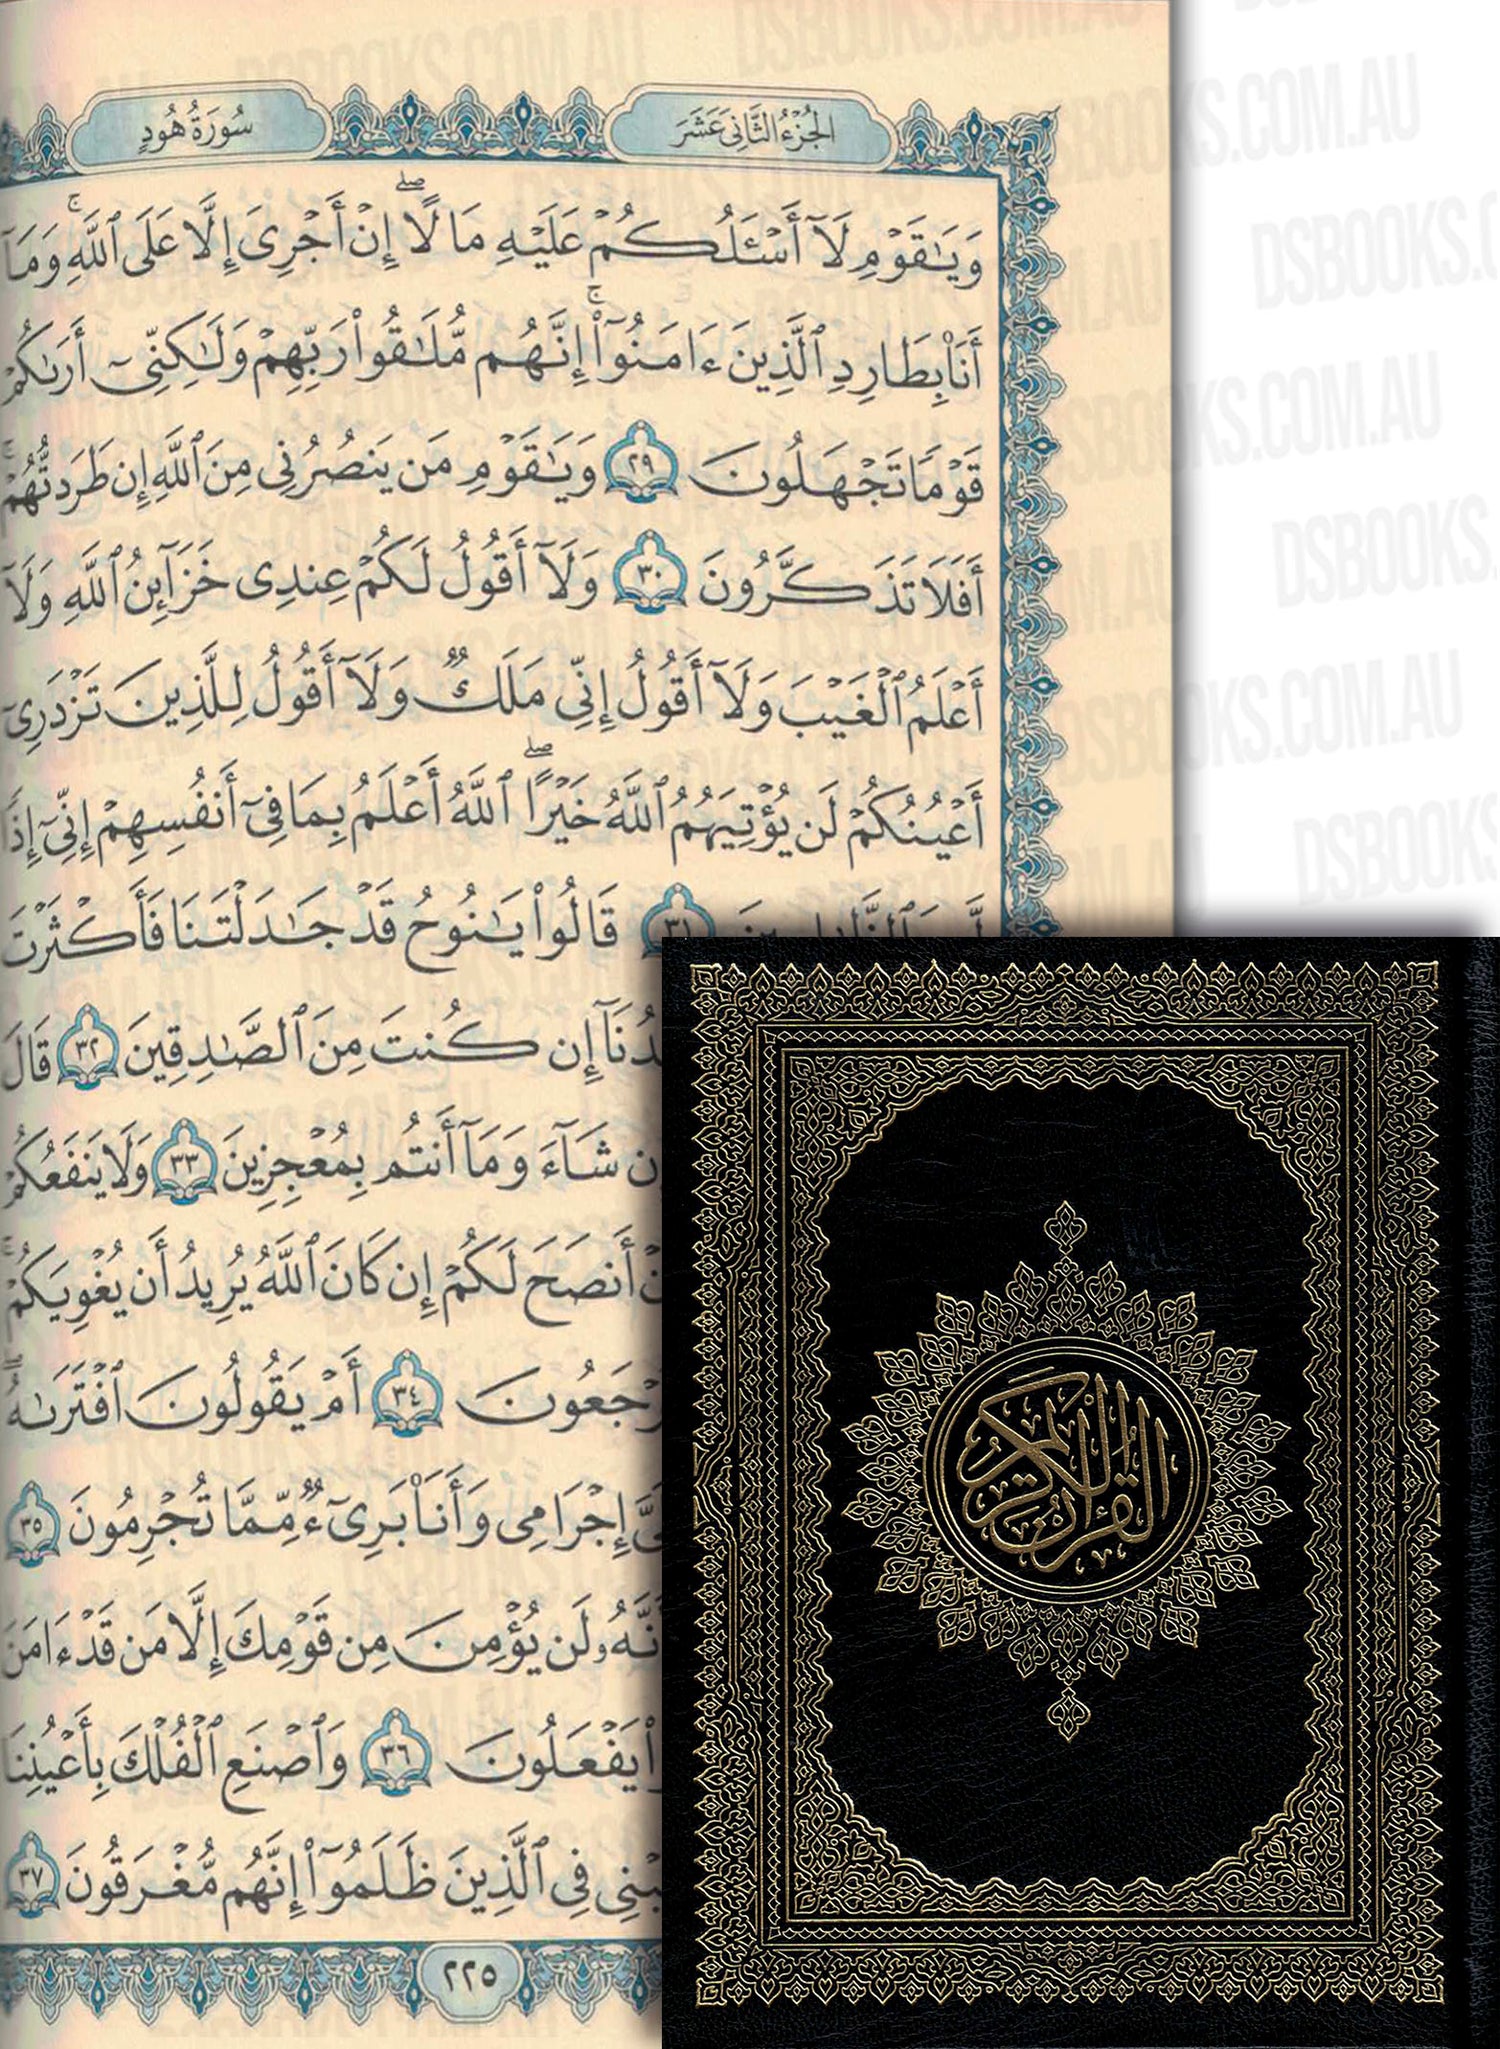 الجُزْءُ الثَّانِيَ عَشَرَ
سُورَةُ هُودٍ
وَيَٰقَوْمِ لَآ أَسْـَٔلُكُمْ عَلَيْهِ مَالًاۖ إِنْ أَجْرِىَ إِلَّا عَلَى ٱللَّهِۚ وَمَآ
أَنَا۠ بِطَارِدِ ٱلَّذِينَ ءَامَنُوٓا۟ۚ إِنَّهُم مُّلَٰقُوا۟ رَبِّهِمْ وَلَٰكِنِّىٓ أَرَىٰكُمْ
قَوْمًا تَجْهَلُونَ ٢٩ وَيَٰقَوْمِ مَن يَنصُرُنِى مِنَ ٱللَّهِ إِن طَرَدتُّهُمْۚ
أَفَلَا تَذَكَّرُونَ ٣٠ وَلَآ أَقُولُ لَكُمْ عِندِى خَزَآئِنُ ٱللَّهِ وَلَآ
أَعْلَمُ ٱلْغَيْبَ وَلَآ أَقُولُ إِنِّى مَلَكٌ وَلَآ أَقُولُ لِلَّذِينَ تَزْدَرِىٓ
أَعْيُنُكُمْ لَن يُؤْتِيَهُمُ ٱللَّهُ خَيْرًاۖ ٱللَّهُ أَعْلَمُ بِمَا فِىٓ أَنفُسِهِمْ إِنِّىٓ إِذًا
٣١ قَالُوا۟ يَٰنُوحُ قَدْ جَٰدَلْتَنَا فَأَكْثَرْتَ
إِن كُنتَ مِنَ ٱلصَّٰدِقِينَ ٣٢ قَالَ
شَآءَ وَمَآ أَنتُم بِمُعْجِزِينَ ٣٣ وَلَا يَنفَعُكُمْ
أَنصَحَ لَكُمْ إِن كَانَ ٱللَّهُ يُرِيدُ أَن يُغْوِيَكُمْۚ
٣٤ أَمْ يَقُولُونَ ٱفْتَرَىٰهُۖ
إِجْرَامِى وَأَنَا۠ بَرِىٓءٌ مِّمَّا تُجْرِمُونَ ٣٥
لَن يُؤْمِنَ مِن قَوْمِكَ إِلَّا مَن قَدْ ءَامَنَ
يَفْعَلُونَ ٣٦ وَٱصْنَعِ ٱلْفُلْكَ بِأَعْيُنِنَا
فِى ٱلَّذِينَ ظَلَمُوٓا۟ إِنَّهُم مُّغْرَقُونَ ٣٧
٢٢٥
القرآن الكريم
DSBOOKS.COM.AU